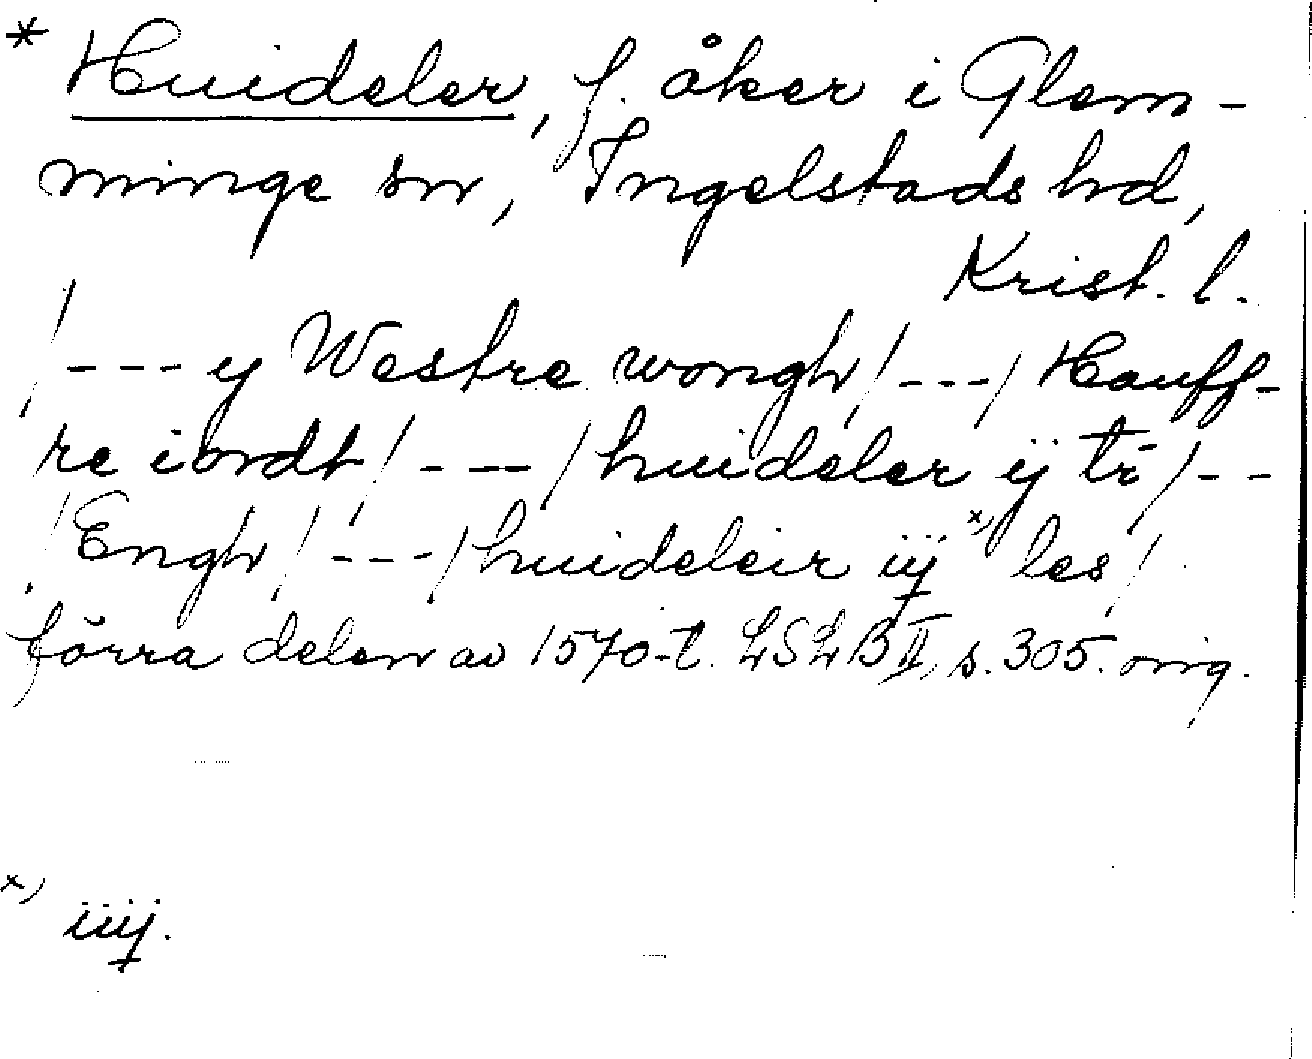 * Huideler, f. åker i Glem-
minge sn, Ingelstads hd,
Krist. l.
/--- y Westre wongh/---/ Hauff-
re iordt/---/ huideler ij tr̄/--
/Engh/---/huideleir iij x) les/
förra delen av 1570-t. LSLB II, s. 305. orig.
x) iiij.